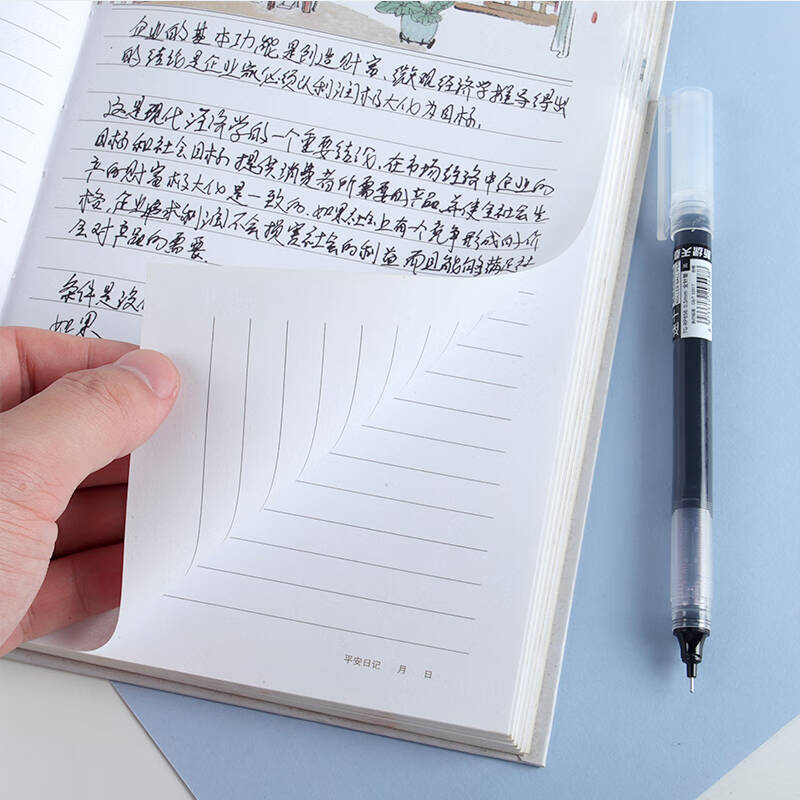 企业的基本功能是创造财富、纵观经济学推导得出
的结论是企业家必须以利润极大化为目标。
这是现代经济学的一个重要结论。在市场经济中企业的
目标和社会目标提供消费者所需要的产品,并使全社会生
产的财富极大化是一致的。如果社会上有一个竞争形成的价
格,企业追求利润不会损害社会的利益,而且能够满足社
会对产品的需要
条件是没
如果
平安日记 月 日